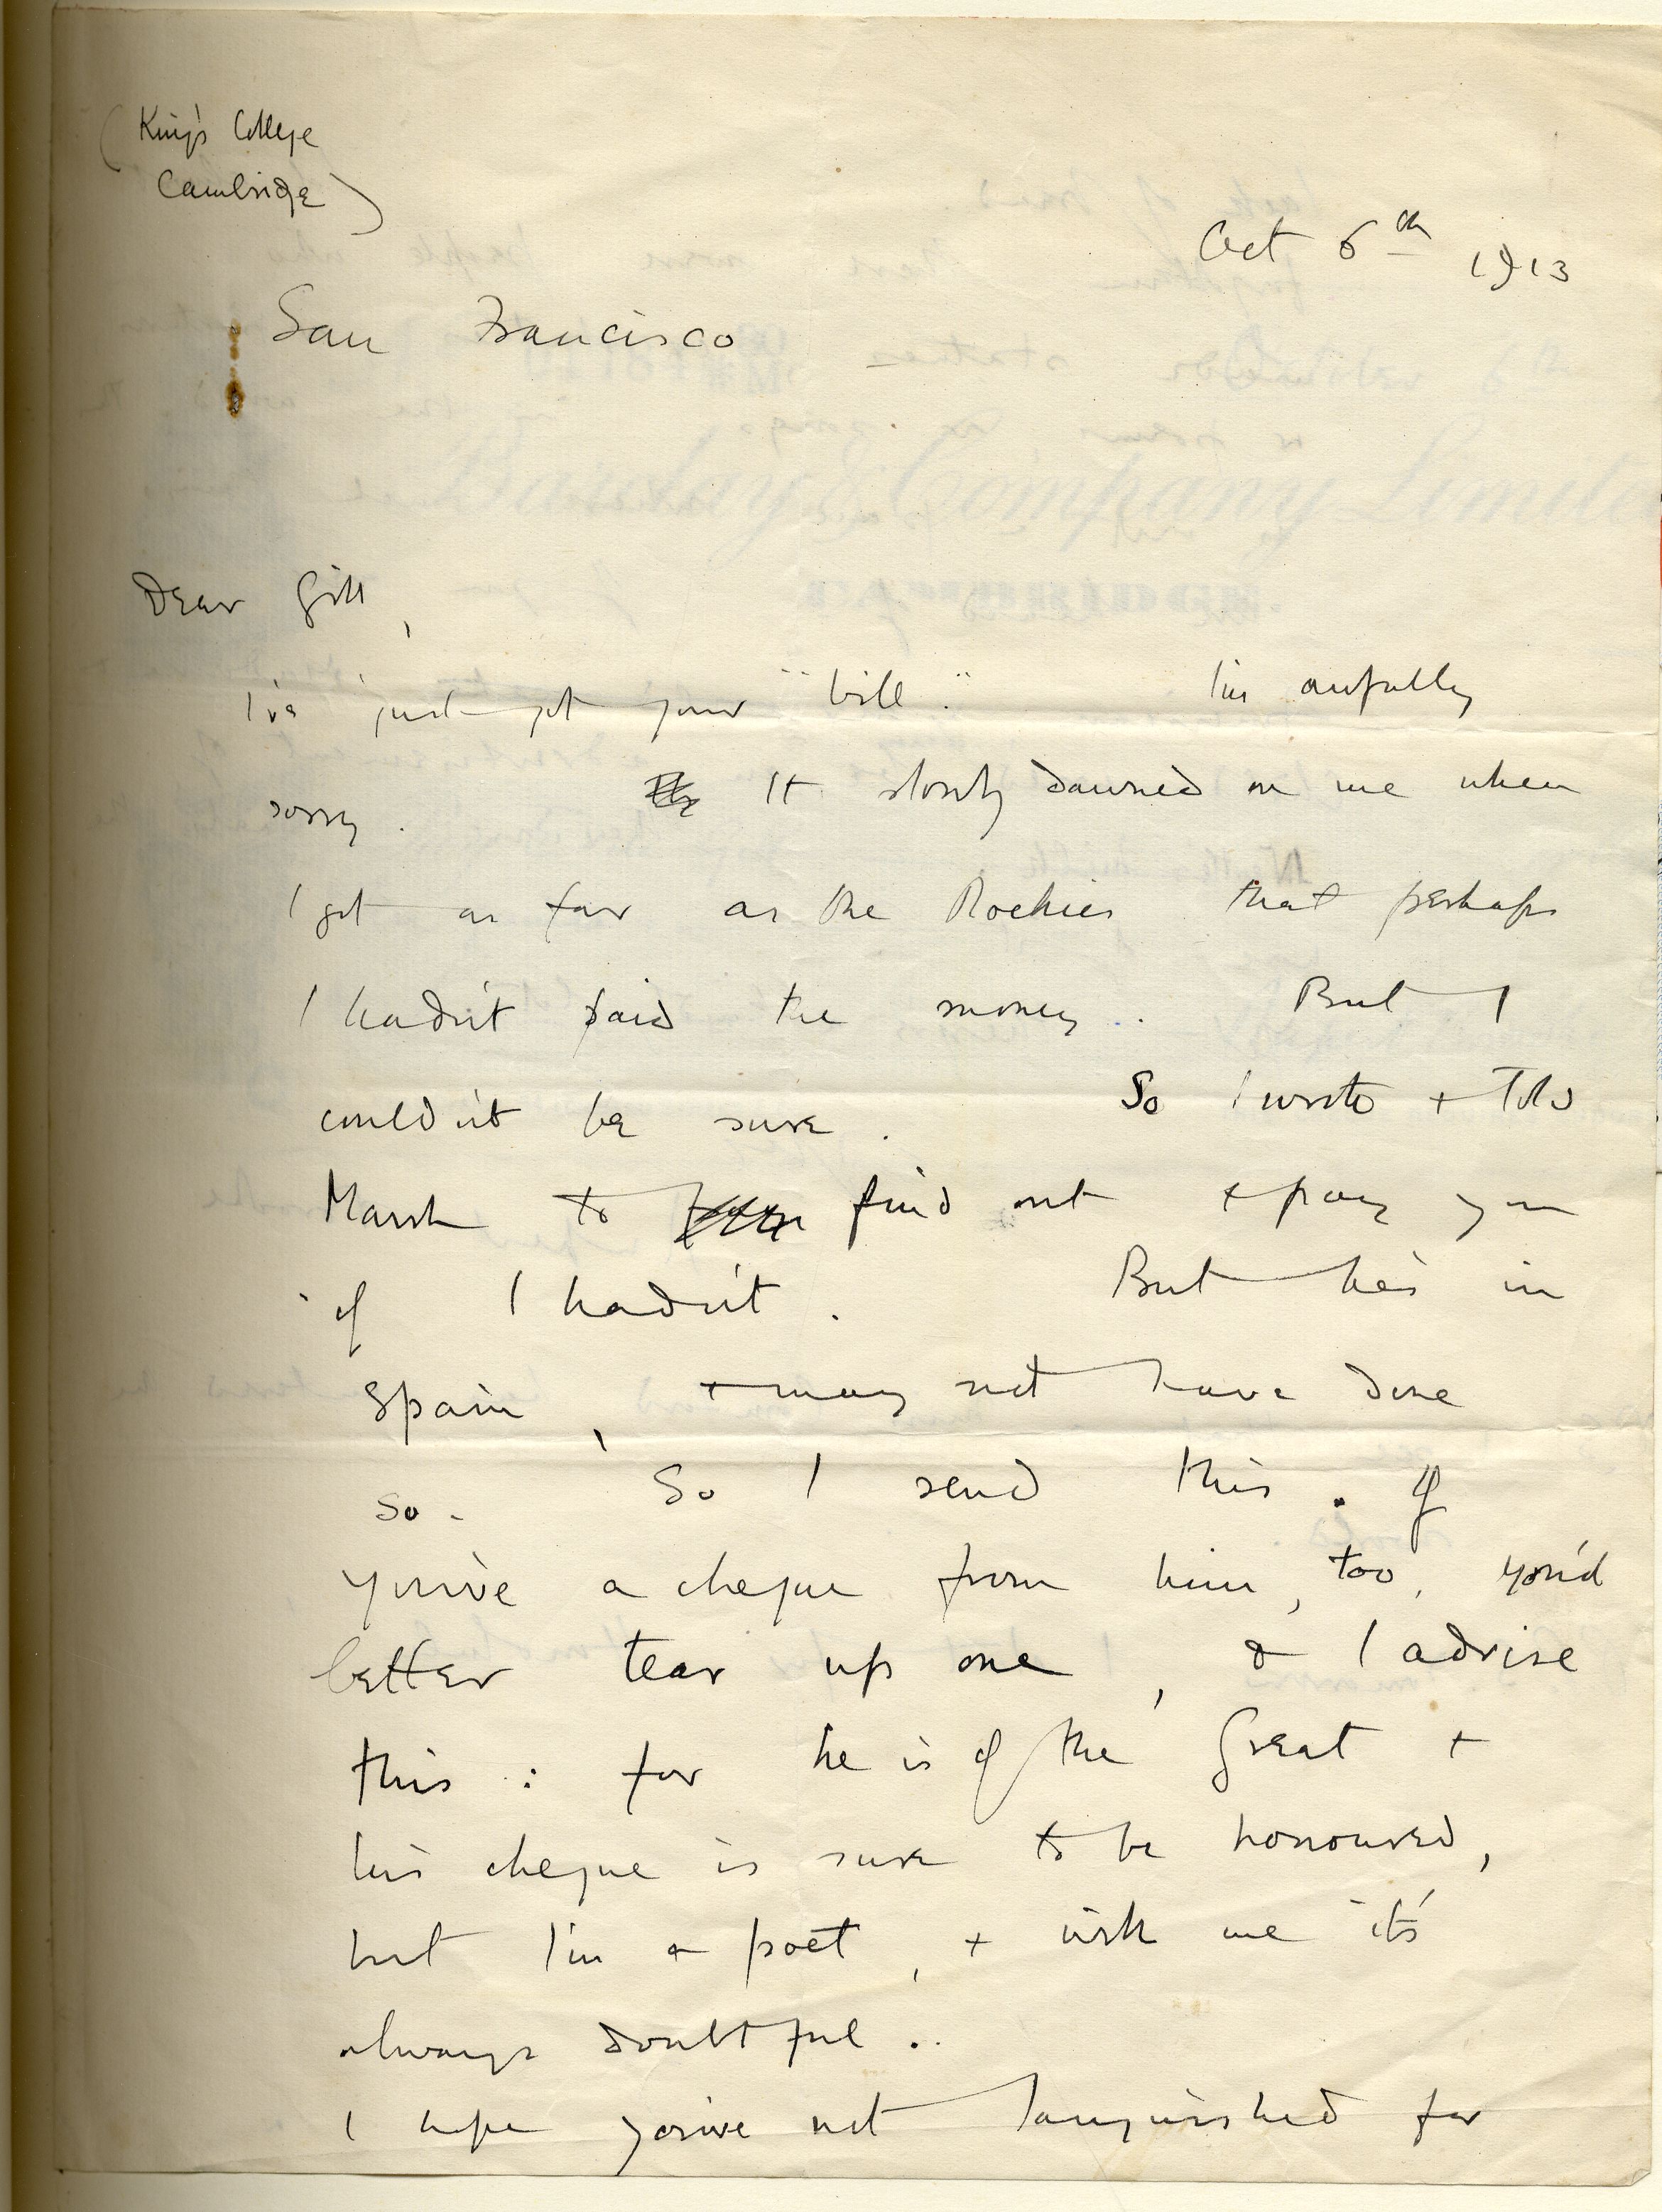 (King's College
Cambridge)
Oct 6th 1913
San Francisco
Dear Gill,
I've just got your "bill". I'm awfully
sorry. It slowly dawned on me when
I got as far as the Rockies that perhaps
I hadn't paid the money. But I
couldn't be sure. So I wrote + told
Marsh to find out + pay you
if I hadn't. But he's in
Spain, + may not have done
so. So I send this. If
you've a cheque from him, too, you'd
better tear up one, & I advise
this: for he is of the Great +
his cheque is sure to be honoured,
but I'm a poet, + with me it's
always doubtful..
I hope you've not languished for